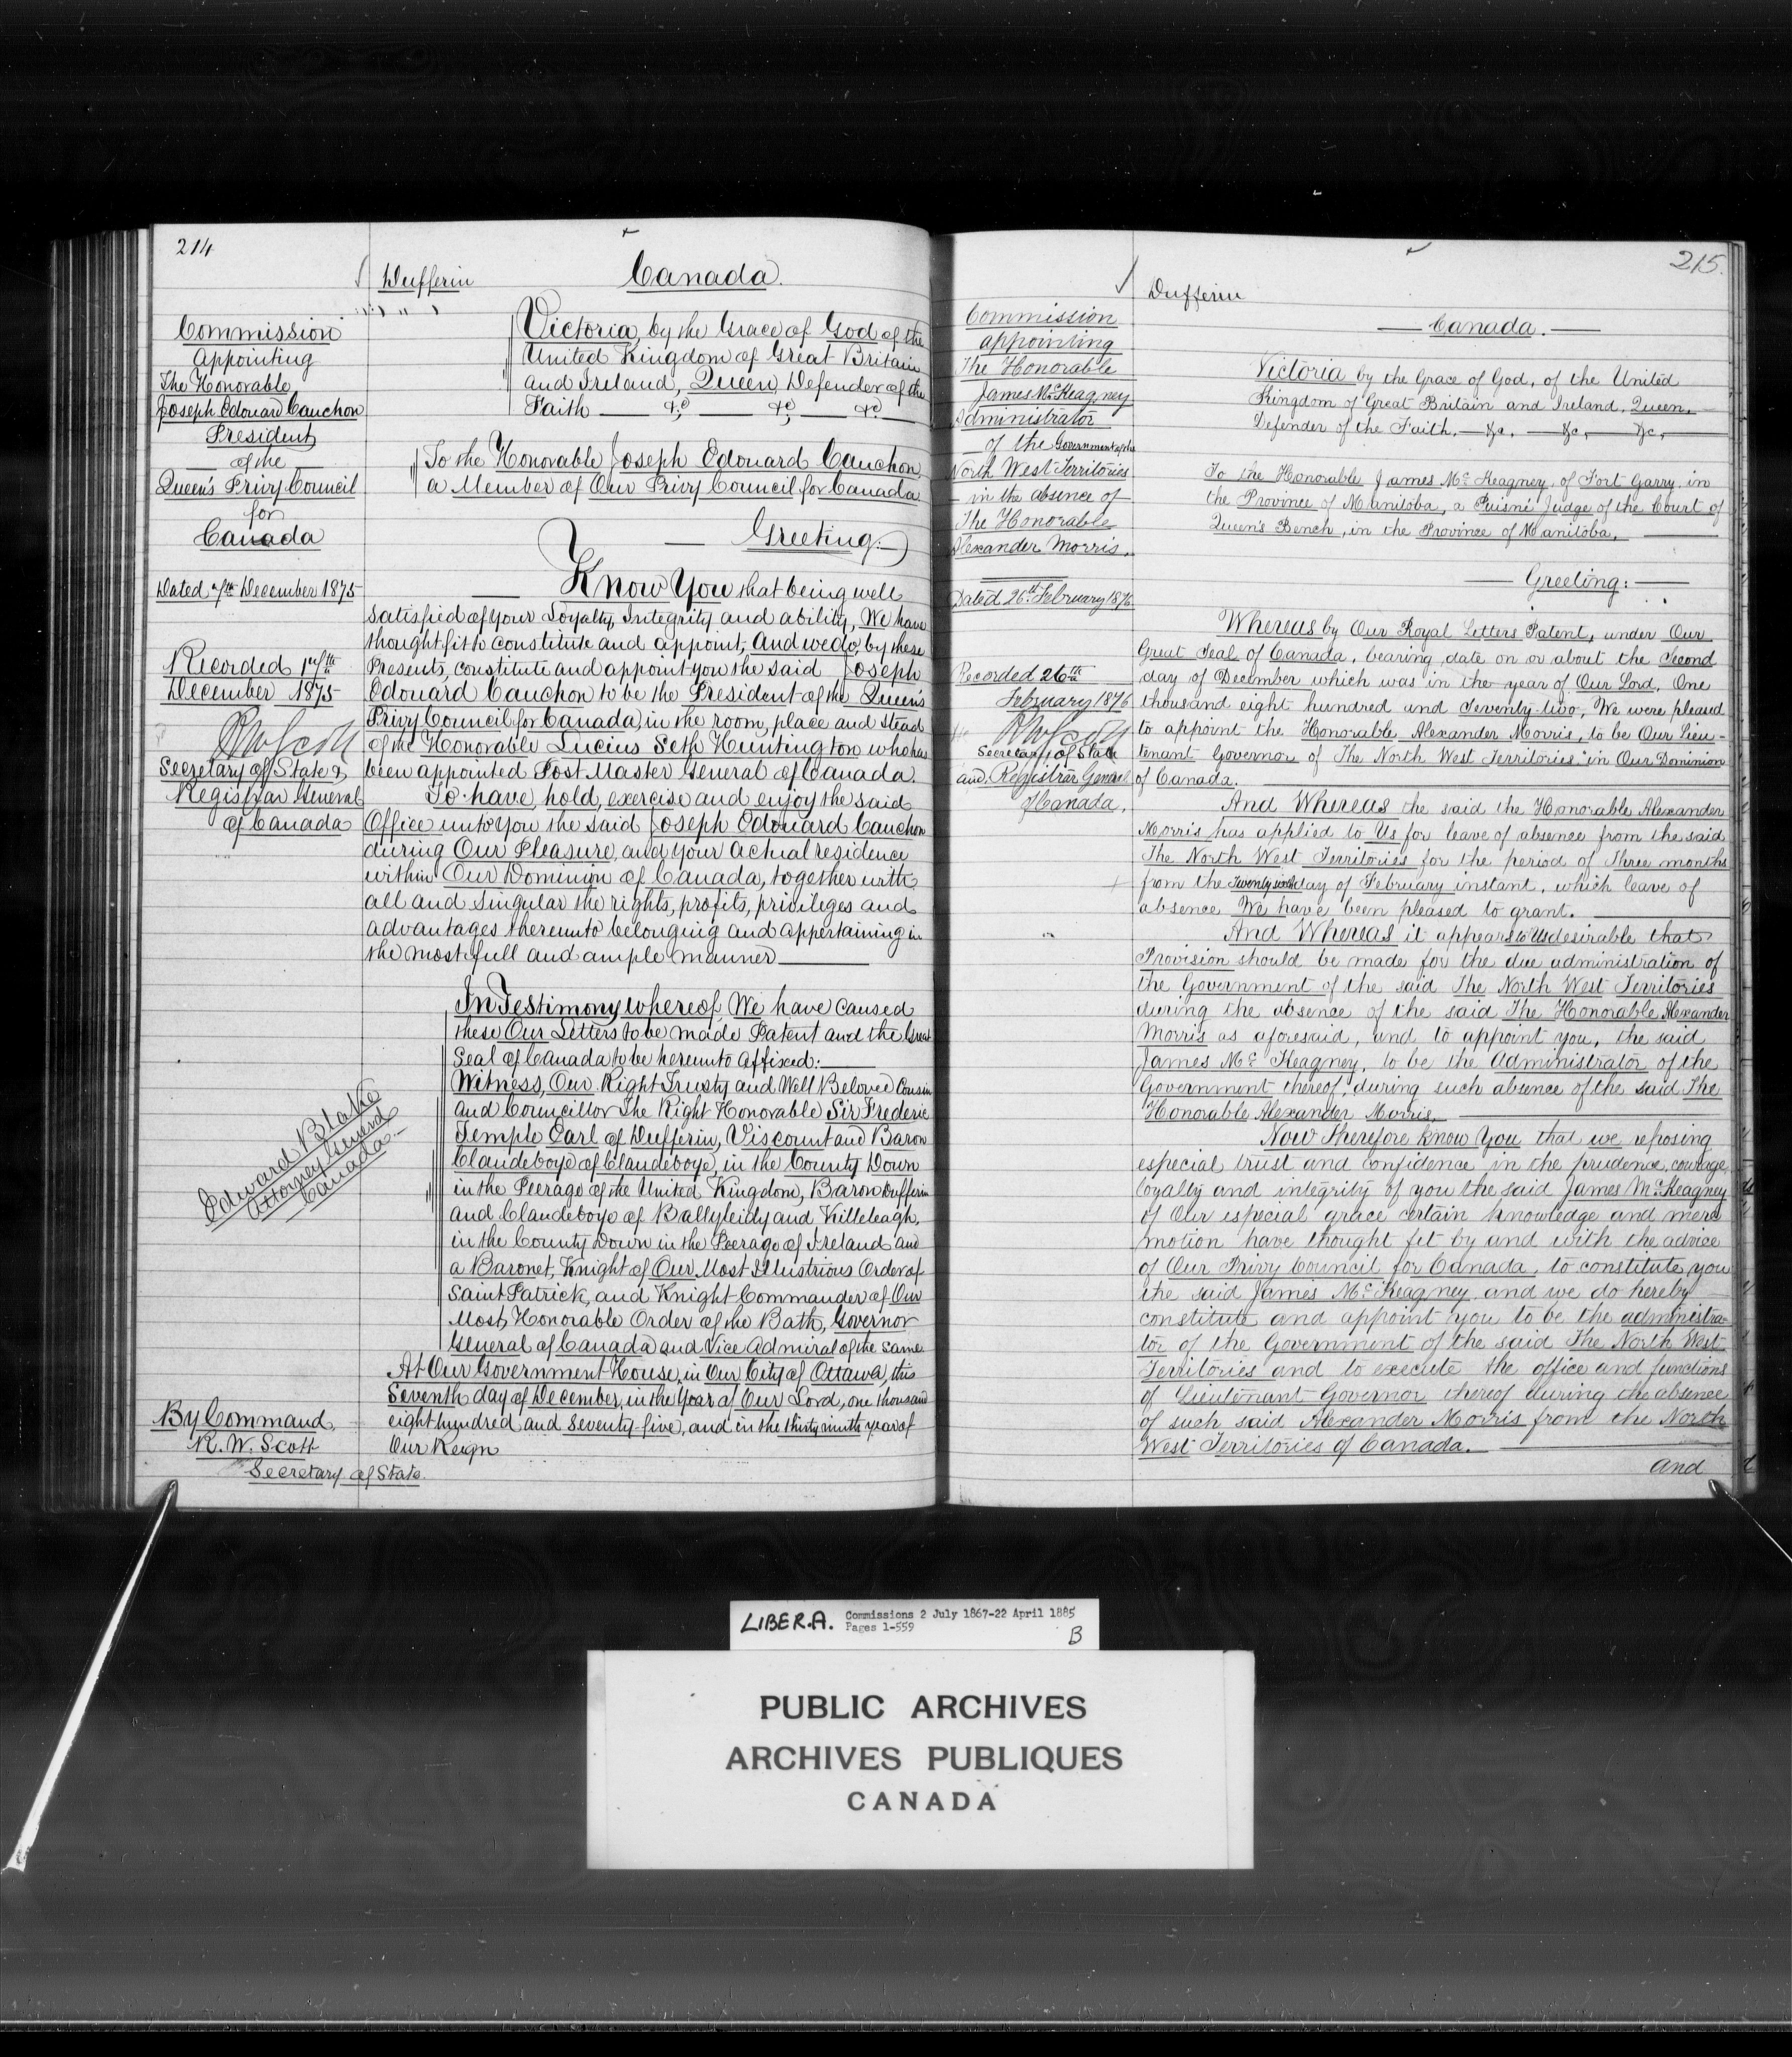 214
Dufferin
Canada.
Commission
Appointing
The Honorable
Joseph Edouard Cauchon
President
of the
Queen's Privy Council
for
Canada
Dated 7th December 1875
Recorded 17th
December 1875
RWScott
Secretary of State &
Registrar General
of Canada
Edward Blake
Attorney General
Canada.
By Command,
R. W. Scott
Secretary of State.
Victoria, by the Grace of God of the
United Kingdom of Great Britain
and Ireland, Queen, Defender of the
Faith — &c — &c — &c
To the Honorable Joseph Edouard Cauchon
a Member of Our Privy Council for Canada
— Greeting:—
— Know You that being well
satisfied of your Loyalty, Integrity and ability, We have
thought fit to constitute and appoint, And we do, by these
Presents, constitute and appoint you the said Joseph
Edouard Cauchon to be the President of the Queen's
Privy Council for Canada, in the room, place and stead
of the Honorable Lucius Seth Huntington who has
been appointed Post Master General of Canada.
To have, hold, exercise and enjoy the said
Office unto You the said Joseph Edouard Cauchon
during Our Pleasure, and your actual residence
within Our Dominion of Canada, together with
all and singular the rights, profits, privileges and
advantages thereunto belonging and appertaining in
the most full and ample manner —
In Testimony whereof, We have caused
these Our Letters to be made Patent and the Great
Seal of Canada to be hereunto affixed: —
Witness, Our Right Trusty and Well Beloved Cousin
and Councillor The Right Honorable Sir Frederic
Temple Earl of Dufferin, Viscount and Baron
Clandeboye of Clandeboye, in the County Down
in the Peerage of the United Kingdom, Baron Dufferin
and Clandeboye of Ballyleidy and Killeleagh,
in the County Down in the Peerage of Ireland and
a Baronet, Knight of Our Most Illustrious Order of
Saint Patrick, and Knight Commander of Our
Most Honorable Order of the Bath, Governor
General of Canada and Vice Admiral of the same
At Our Government House, in Our City of Ottawa, this
Seventh day of December, in the Year of Our Lord, one thousand
eight hundred and seventy-five, and in the thirty ninth year of
Our Reign
215.
Dufferin
— Canada. —
Commission
appointing
The Honorable
James McKeagney
Administrator
of the Government of the
North West Territories
in the absence of
The Honorable
Alexander Morris.
Dated 26th February 1876
Recorded 26th
February 1876
RWScott
Secretary of State
and Registrar General
of Canada.
Victoria by the Grace of God, of the United
Kingdom of Great Britain and Ireland, Queen,
Defender of the Faith, — &c. — &c, — &c, —
To the Honorable James Mc Keagney, of Fort Garry, in
the Province of Manitoba, a Puisné Judge of the Court of
Queen's Bench, in the Province of Manitoba, —
— Greeting: —
Whereas by Our Royal Letters Patent, under Our
Great Seal of Canada, bearing date on or about the Second
day of December which was in the year of Our Lord, One
thousand eight hundred and Seventy-two, We were pleased
to appoint the Honorable Alexander Morris, to be Our Lieu-
tenant Governor of The North West Territories in Our Dominion
of Canada. —
And Whereas the said the Honorable Alexander
Morris has applied to Us for leave of absence from the said
The North West Territories for the period of three months
from the Twenty sixth day of February instant, which leave of
absence We have been pleased to grant. —
And Whereas it appears to Us desirable that
Provision should be made for the due administration of
the Government of the said the North West Territories
during the absence of the said The Honorable Alexander
Morris as aforesaid, and to appoint you, the said
James Mc Keagney, to be the Administrator of the
Government thereof, during such absence of the said The
Honorable Alexander Morris —
Now Therefore Know You that we reposing
especial trust and confidence in the prudence, courage,
loyalty and integrity of you the said James McKeagney
of Our especial grace certain knowledge and mere
motion have thought fit by and with the advice
of Our Privy Council for Canada, to constitute you
the said James Mc Keagney and we do hereby
constitute and appoint you to be the administra-
tor of the Government of the said The North West
Territories and to execute the office and functions
of Lieutenant-Governor thereof during the absence
of such said Alexander Morris from the North
West Territories of Canada. —
and
LIBER.A. Commissions 2 July 1867-22 April 1885
Pages 1-559
B
PUBLIC ARCHIVES
ARCHIVES PUBLIQUES
CANADA